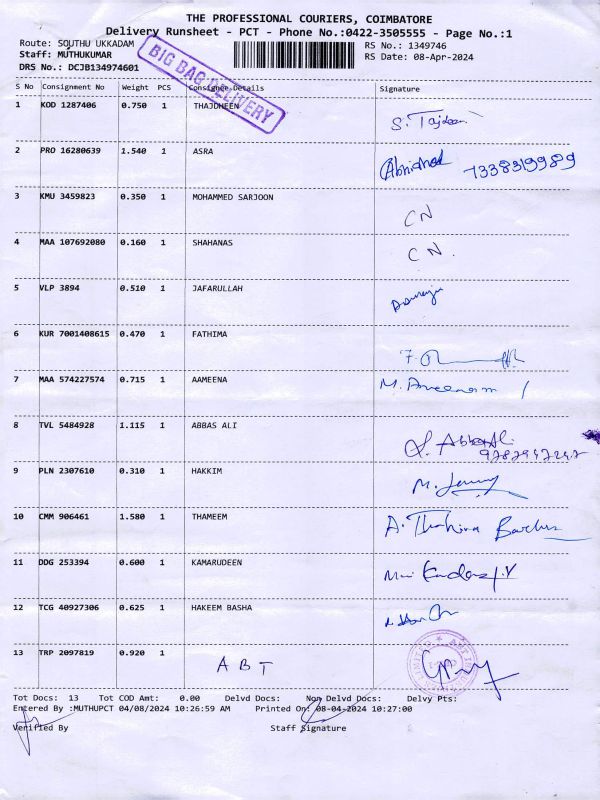 THE PROFESSIONAL COURIERS, COIMBATORE
Delivery Runsheet - PCT - Phone No.:0422-3505555 - Page No.:1
Route: SOUTHU UKKADAM
RS No.: 1349746
Staff: MUTHUKUMAR
RS Date: 08-Apr-2024
DRS No.: DCJB134974601
BIG BAG DELIVERY
S No Consignment No Weight PCS Consignee Details Signature
1 KOD 1287406 0.750 1 THAJDHEEN S. Tajdeen
2 PRO 16280639 1.540 1 ASRA 7338319989
3 KMU 3459823 0.350 1 MOHAMMED SARJOON CN
4 MAA 107692080 0.160 1 SHAHANAS CN.
5 VLP 3894 0.510 1 JAFARULLAH
6 KUR 7001408615 0.470 1 FATHIMA
7 MAA 574227574 0.715 1 AAMEENA
8 TVL 5484928 1.115 1 ABBAS ALI
9 PLN 2307610 0.310 1 HAKKIM
10 CMM 906461 1.580 1 THAMEEM
11 DDG 253394 0.600 1 KAMARUDEEN
12 TCG 40927306 0.625 1 HAKEEM BASHA
13 TRP 2097819 0.920 1 ABT
Tot Docs: 13 Tot COD Amt: 0.00 Delvd Docs: Non Delvd Docs: Delvy Pts:
Entered By :MUTHUPCT 04/08/2024 10:26:59 AM Printed On: 08-04-2024 10:27:00
Verified By Staff Signature